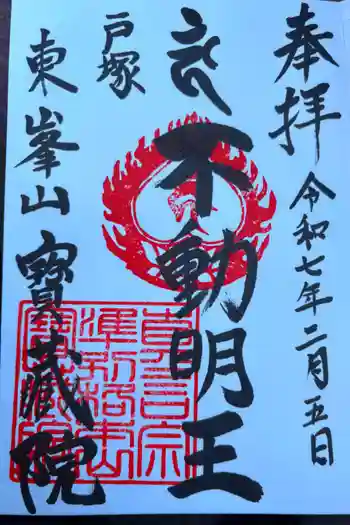 奉拝
令和七年二月五日
不動明王
戸塚
東峯山
寳蔵院
真言宗
準別格本山
寳蔵院